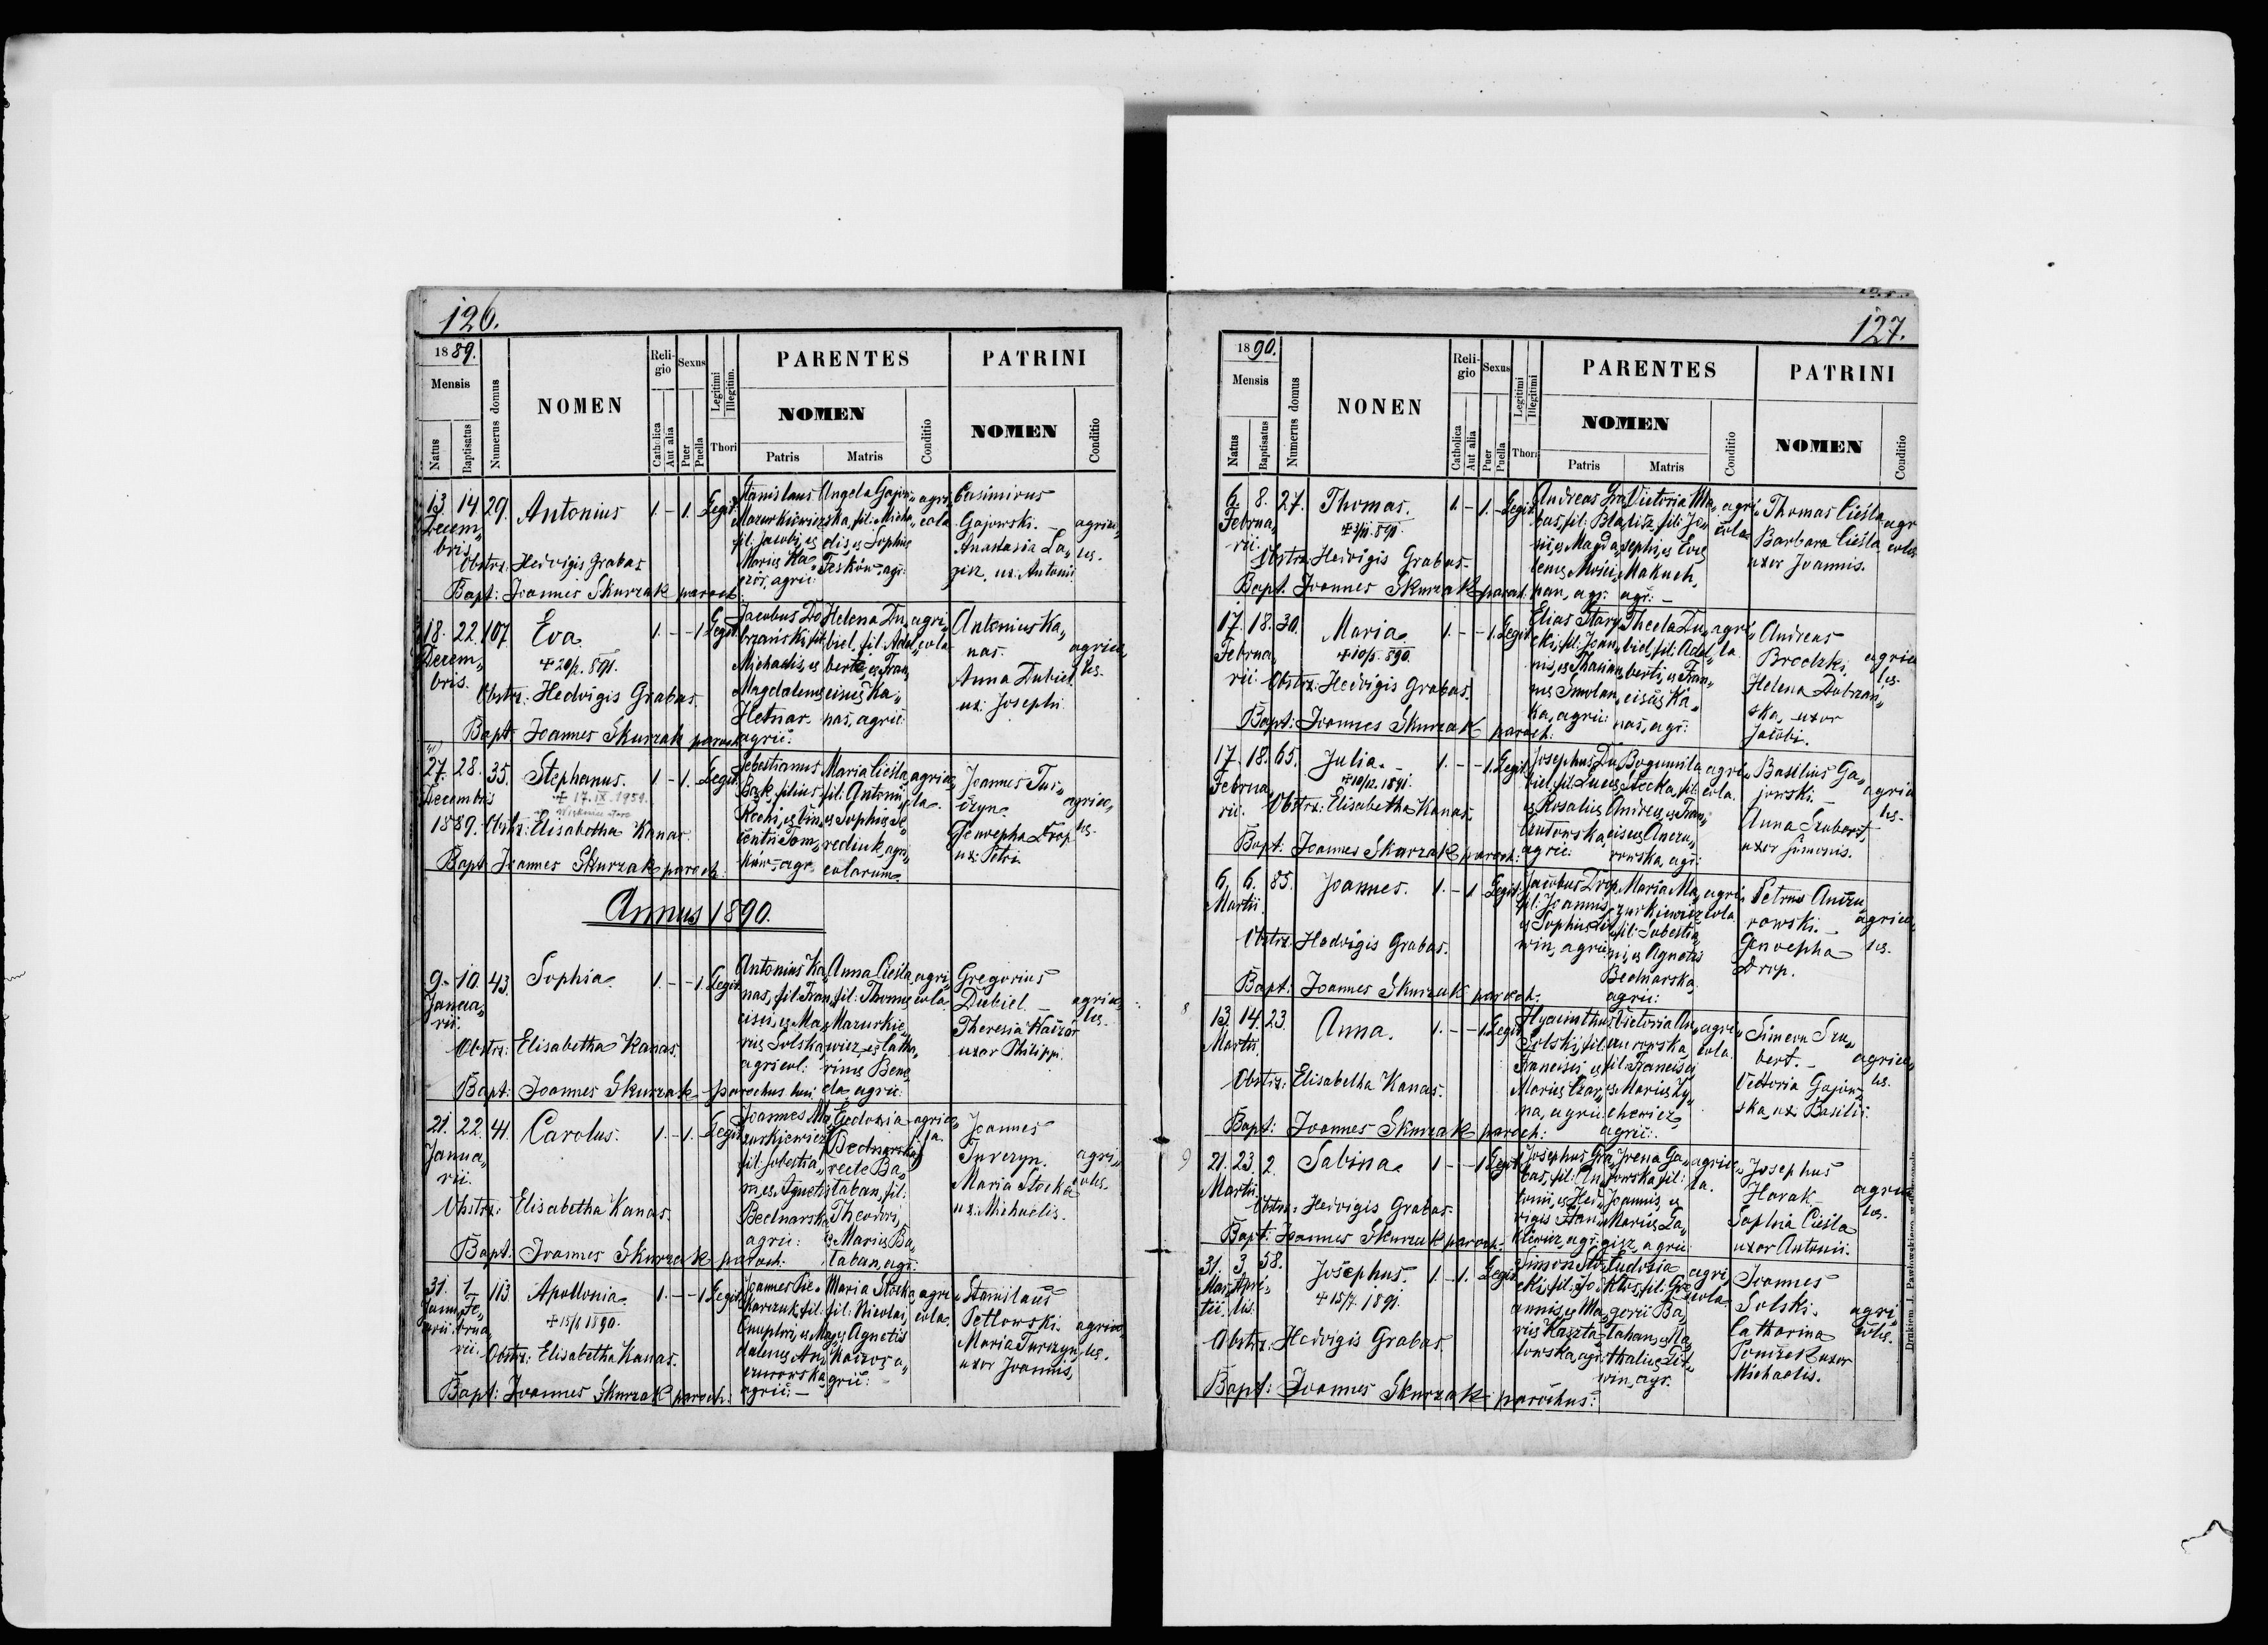 126.
1889.
Mensis
Natus
Baptisatus
Numerus domus
NOMEN
Religio
Catholica
Aut alia
Sexus
Puer
Puella
Legitimi
Illegitim.
Thori
PARENTES
NOMEN
Patris
Matris
Conditio
PATRINI
NOMEN
Conditio
13. 14 29. Antonius 1. – 1. – Legit.
Decem„
bris
Stanislaus
Mazurkiewicz
fil: Jacobi, et
Mariæ
agric:
Angela Gajow„
ska, fil: Micha„
elis, et Sophiæ
Teskow, agr:
agri„
cola
Casimirus
Gajowski. –
Anastasia La„
gisz, ux: Antonii
agrico„
læ.
Obstrx: Hedvigis Grabas
Bapt: Joannes Skurzak paroch
18. 22. 107. Eva. 1. – – 1 Legit.
Decem„
bris.
+ 20/2. 891.
Jacobus Do
brzański, fil:
Michaelis, et
Magdalenæ
Hetnar
agric:
Helena Du„
biel, fil: Adal„
berti, et Fran„
ciscæ Ka„
nas, agric:
agri„
cola
Antonius Ka„
nas.
Anna Dubiel
ux: Josephi
agrico„
læ.
Obstrx: Hedvigis Grabas.
Bapt: Joannes Skurzak paroch
27. 28. 35. Stephanus. 1 – 1. – Legit.
Decembris
1889.
+ 17. IX. 1951.
Sebastianus
Bąk, filius
Rochi, et Vin„
centiæ Tom„
ków – agr.
Maria Cieśla
fil: Antonii,
et Sophiæ Fe„
rediuk, agri„
colarum.
agrico„
la.
Joannes Tur„
czyn.
Genovepha Drop
ux: Petri
agrico„
læ.
Obstrx: Elisabetha Kanas.
Bapt: Joannes Skurzak paroch.
Annus 1890.
9. 10. 43. Sophia. 1. – – 1. Legit.
Janua„
rii.
Antonius Ka„
nas, fil: Fran„
cisci, et Ma„
riæ Solska,
agricol:
Anna Cieśla
fil: Thomæ
Mazurkie„
wicz, et Catha„
rinæ Bene„
da, agric:
agri„
cola.
Gregorius
Dubiel. –
Theresia Kaczor
uxor Philippi.
agrico„
læ.
Obstrx: Elisabetha Kanas.
Bapt: Joannes Skurzak parochus
21. 22. 41. Carolus. 1. – 1. – Legit.
Janua„
rii.
Joannes Ma„
zurkiewicz
fil: Sebastia„
ni, et Agnetis
Bednarska
agric:
Eudoxia
(Bednarska)
recte Ba„
taban, fil:
Theodori,
et Mariæ Ba„
taban, agr:
Joannes
Turczyn.
Maria Stocka
ux: Michaelis.
agri„
colæ.
Obstrx: Elisabetha Kanas.
Bapt: Joannes Skurzak paroch:
31. 1. 113. Apollonia. 1. – – 1 Legit.
Janu„
arii
Fe„
brua„
rii.
+ 15/6 1890.
Joannes Pie„
karczuk, fil:
Onuphri, et Mag„
dalenæ An„
czurowska
agric: –
Maria Stocka
fil: Nicolai,
et Agnetis
Kaczor, a„
gric:
agri„
cola.
Stanislaus
Petlowski.
Maria Turczyn,
uxor Joannis,
agrico„
læ.
Obstrx: Elisabetha Kanas.
Bapt: Joannes Skurzak paroch.
127.
1890.
Mensis
Natus
Baptisatus
Numerus domus
NONEN
Religio
Catholica
Aut alia
Sexus
Puer
Puella
Legitimi
Illegitimi
Thori
PARENTES
NOMEN
Patris
Matris
Conditio
PATRINI
NOMEN
Conditio
6. 8. 27. Thomas. 1. – 1. – Legit.
Februa„
rii.
Andreas Gra„
bas, fil: Bla„
sii, et Magda„
lenæ Mości„
pan, agr:
Victoria
fil: Jo„
sephi, et Evæ
Makuch,
agr: –
agri„
cola
Thomas Cieśla
Barbara Cieśla
uxor Joannis.
agr
colæ
Obstrx: Hedvigis Grabas.
Bapt. Joannes Skurzak paroch.
17. 18. 30. Maria. 1. – – 1. Legit.
Februa„
rii.
+ 10/5. 890.
Elias Stary
fil: Joan„
nis, et Thasian„
næ Smolan„
ka, agric:
Thecla Du„
biel, fil: Adal„
berti, et Fran„
ciscæ Ka„
nas, agr:
Andreas
Brodzki.
Helena Dobrzań„
ska, uxor
Jacobi.
Obstrx: Hedvigis Grabas.
Bapt: Joannes Skurzak paroch:
17. 18. 65. Julia. – 1. – – 1. Legit.
Februa„
rii.
Josephus Du„
biel, fil: Lucæ,
et Rosaliæ
agric:
Bogumila
Stocka, fil:
Andreæ, et Fran„
ciscæ Anczu„
rowska, agr:
agri„
cola.
Basilius Ga„
jowski. –
Anna Szubert,
uxor Simonis.
Obstrx: Elisabetha Kanas.
Bapt: Joannes Skurzak paroch:
6. 6. 85. Joannes. 1. – 1 – Legit.
Martii.
Jacobus Drop,
fil: Joannis,
et Sophiæ Lit„
win, agric:
Maria Ma„
zurkiewicz
fil: Sebastia„
ni, et Agnetis
Bednarska
agric:
agri„
cola.
Petrus Anczu„
rowski. –
Genovepha
Drop.
agrico„
læ.
Obstrx: Hedvigis Grabas.
Bapt: Joannes Skurzak paroch.
8
13. 14. 23. Anna. 1. – – 1. Legit.
Martii.
Hyacinthus
Solski, fil:
Francisci, et
Mariæ Czar„
na, agric:
Victoria An„
czurowska,
fil: Francisci
et Mariæ Hy„
chewicz,
agric:.
agri„
cola.
Simeon Szu„
bert. –
Victoria Gajow„
ska, ux: Basilii.
agrico„
læ.
Obstrx: Elisabetha Kanas.
Bapt: Joannes Skurzak paroch:
9
21. 23. 2. Sabina. 1 – – 1 Legit.
Martii.
Josephus Gra„
bas, fil: An„
tonii, et Hed„
vigis
agr:
Irena Ga„
jowska, fil:
Joannis, et
Mariæ La„
gisz, agric:
agrico„
la.
Josephus
Horak –
Sophia Cieśla
uxor Antonii.
Obstrx: Hedvigis Grabas.
Bapt: Joannes Skurzak paroch.
31. 3. 58. Josephus. 1. – 1. – Legit.
Mar„
tii.
Apri„
lis.
+ 15/7. 1891.
Simon Sto„
cki, fil: Jo„
annis, et Ma„
riæ Kaszta„
lowska, agr:
Eudoxia
Kłos, fil: Gre„
gorii Ba„
taban, et Na„
thaliæ Lit„
win, agr.
agri„
cola.
Joannes
Solski.
Catharina
Poniżek uxor
Michaelis.
agri„
colæ.
Obstrx: Hedvigis Grabas.
Bapt: Joannes Skurzak parochus: